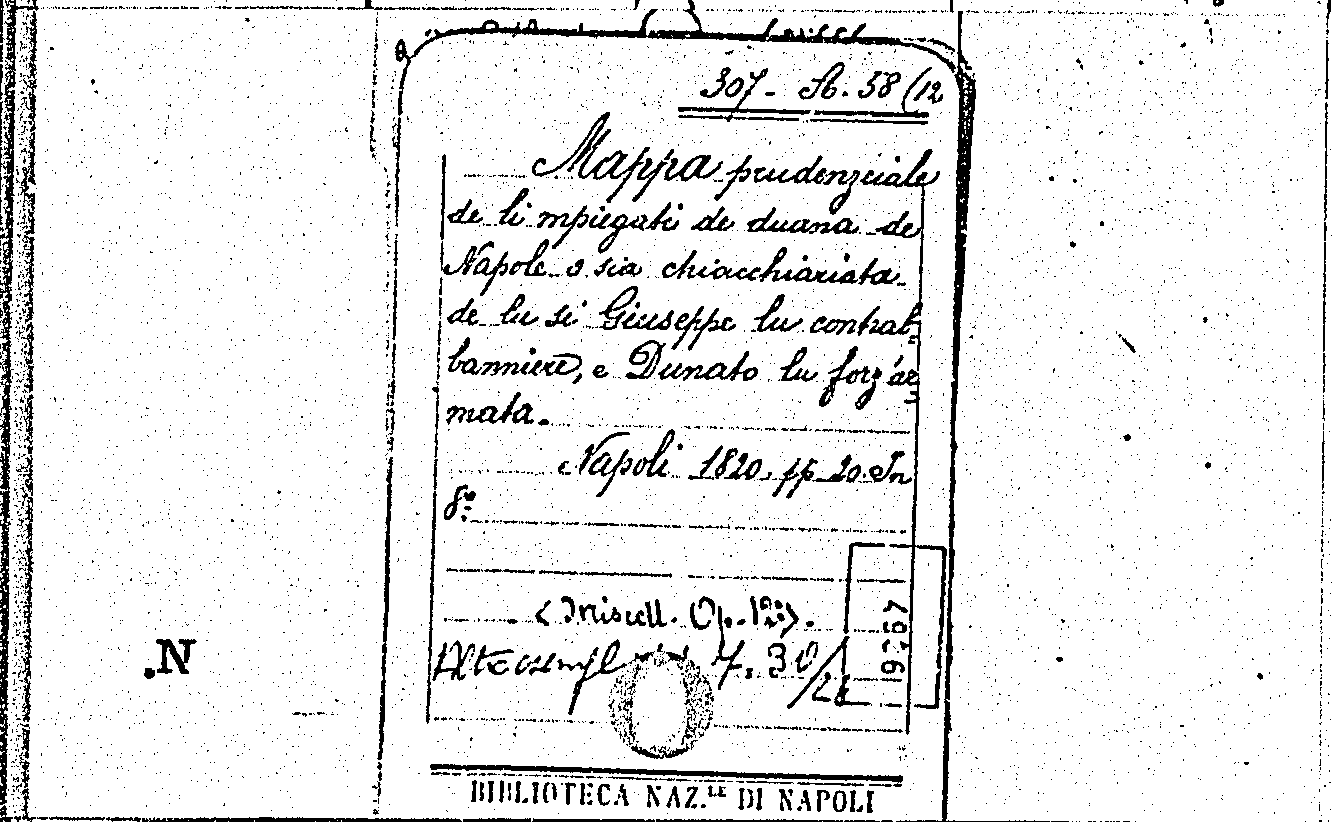 307 - St. 58 (12
Mappa prudenzeiale
de li mpiegati de duana de
Napole o sia chiacchiariata
de lu si Giuseppe lu contrab-
banniere, e Dunato lu forz'ar-
mata.
Napoli 1820. pp 20. In
8º.
(Miscell. Op. 12º).
7. 30/
N.
BIBLIOTECA NAZ.LE DI NAPOLI